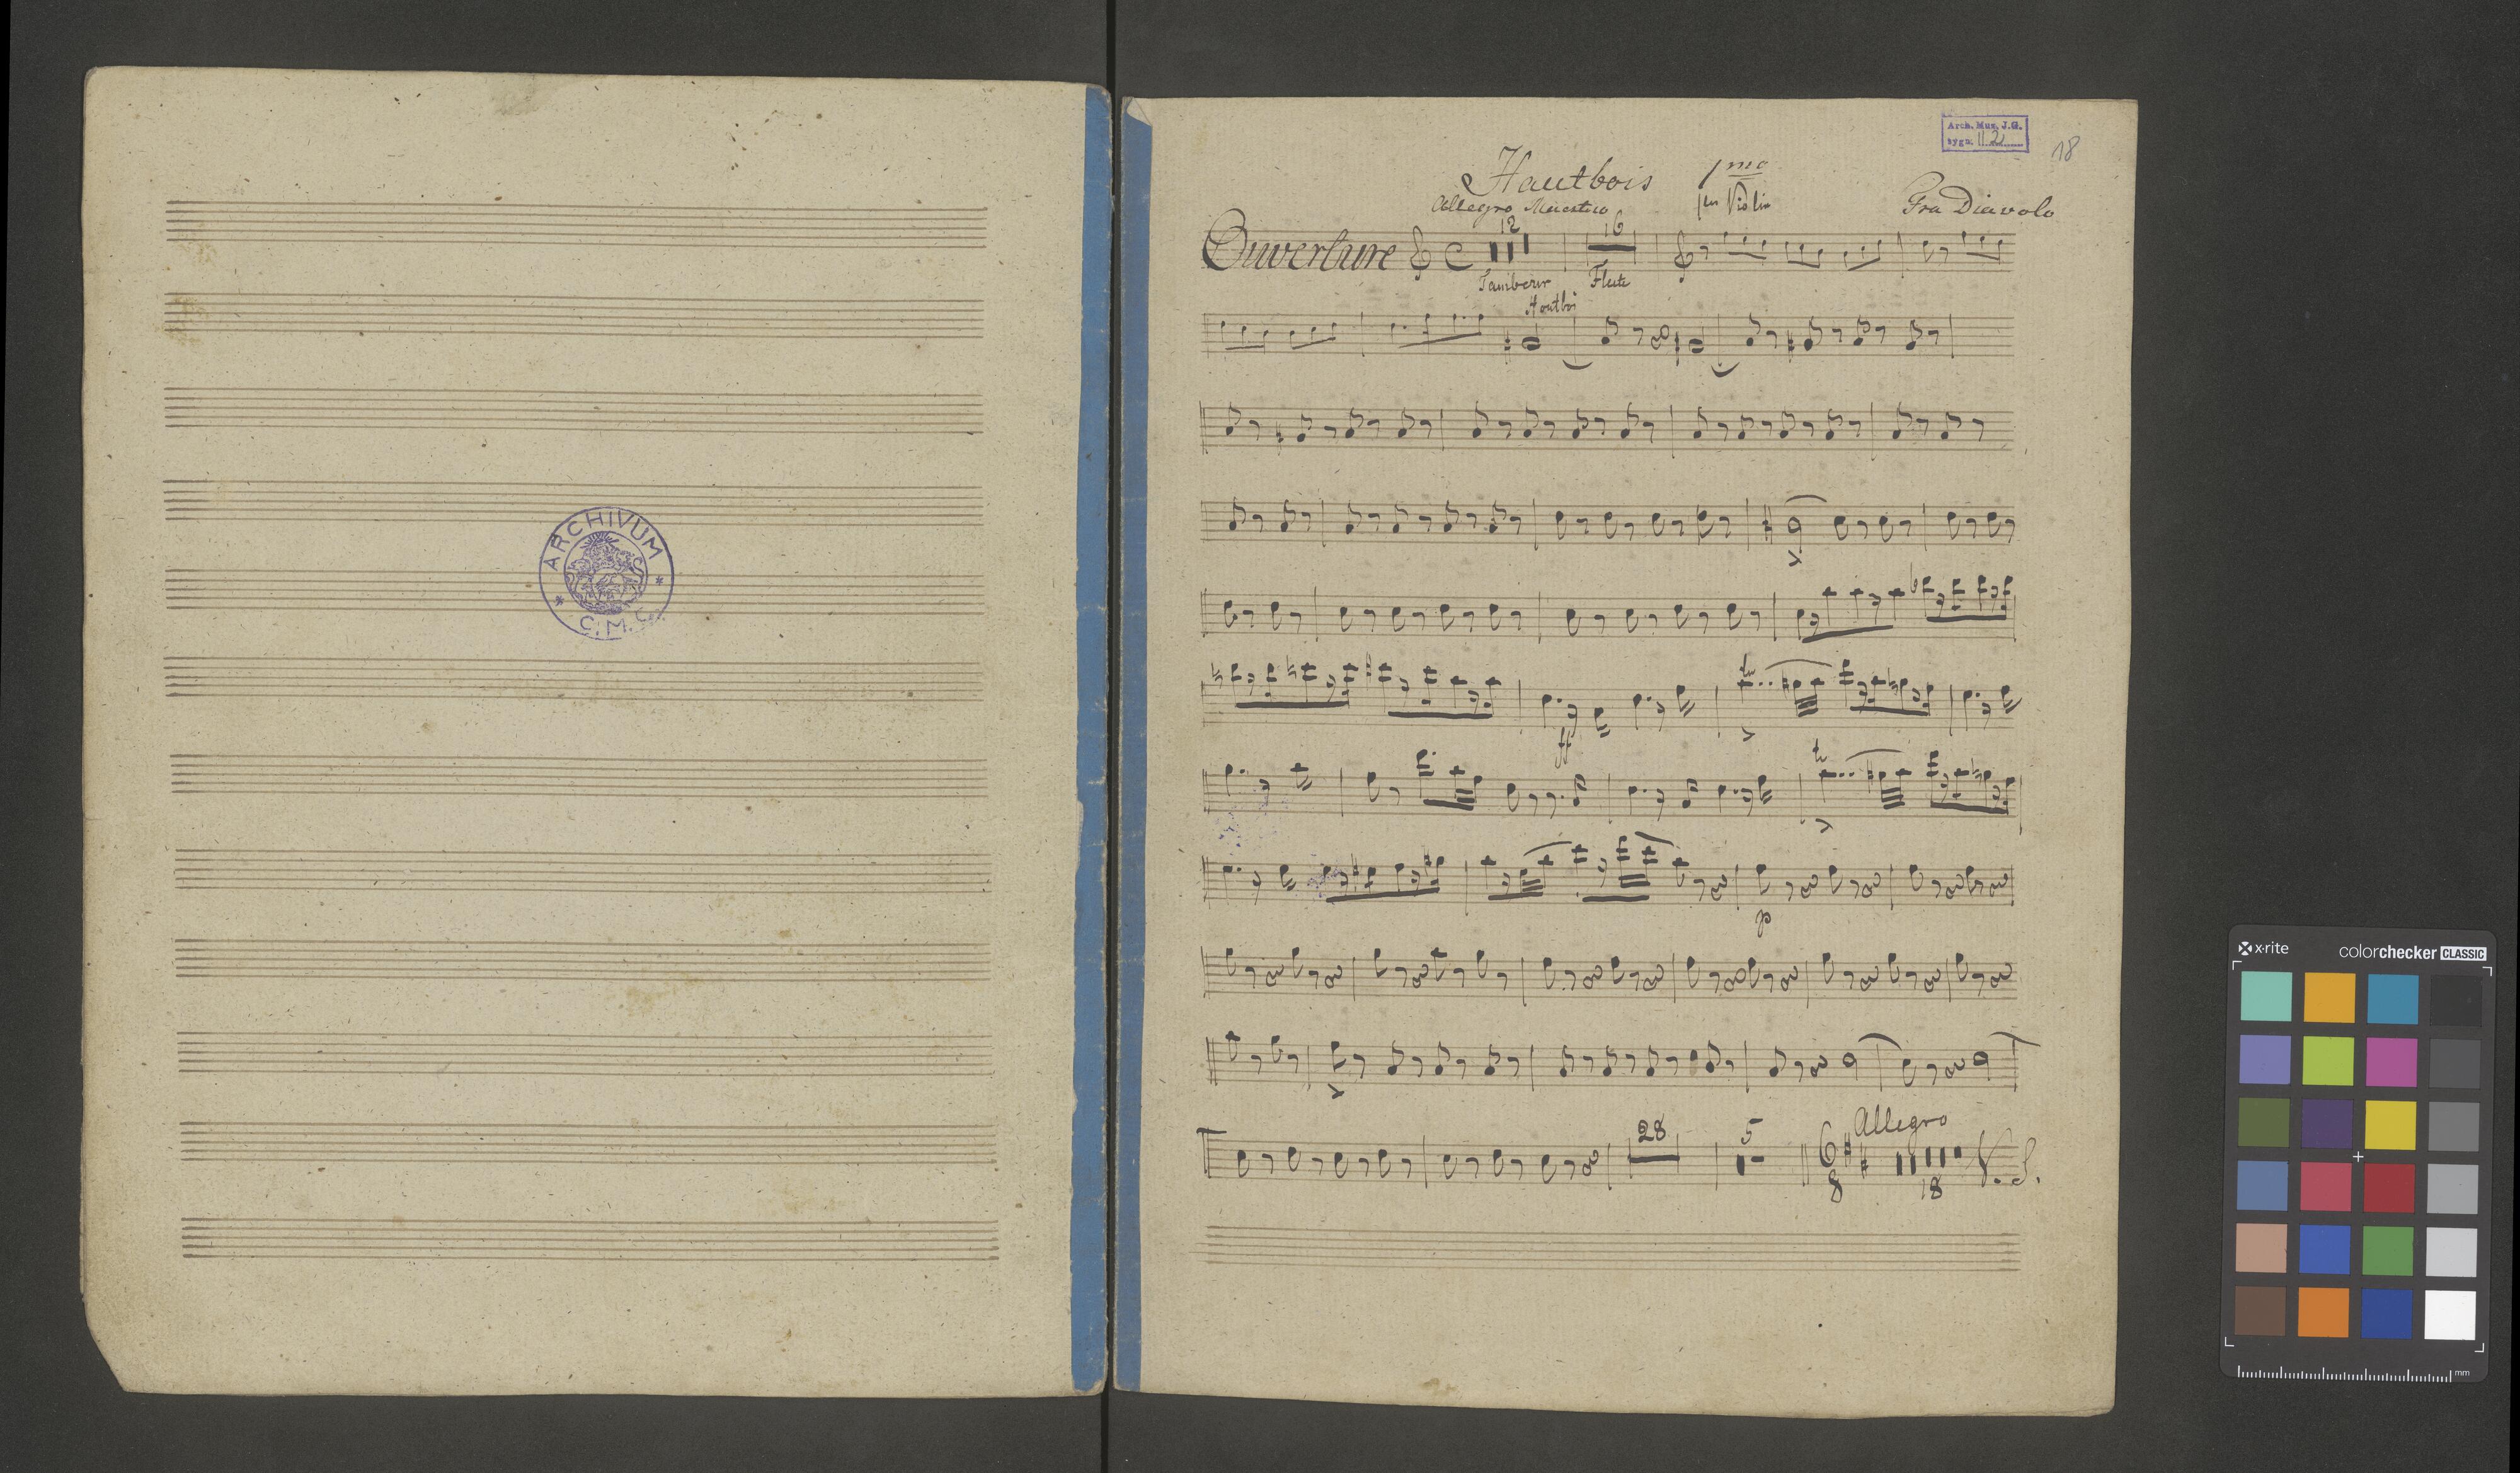 ARCHIVUM
* C.M.C. *
Arch. Mus. J.G.
sygn. II 2
18
Hautbois 1mo
Allegro Maestuo
1m Violin
Fra Diavolo
12
16
Ouverture
Flute
Hautboi
tr
ff
tr
p
28
5
Allegro
6
8
18
V. S.
x·rite
colorchecker CLASSIC
mm